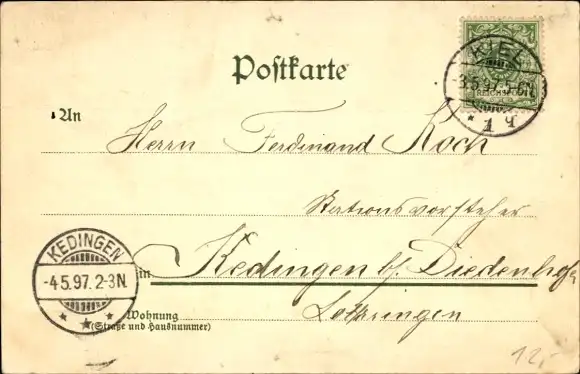 Postkarte
KIEL
3.5.97.5-6N.
* 1 q
REICHSPOST
An
Herrn Ferdinand Koch
Stationsvorsteher
KEDINGEN
-4.5.97.2-3N.
* * *
in Kedingen b/ Diedenhofen
Lothringen
Wohnung
(Straße und Hausnummer)
12,-